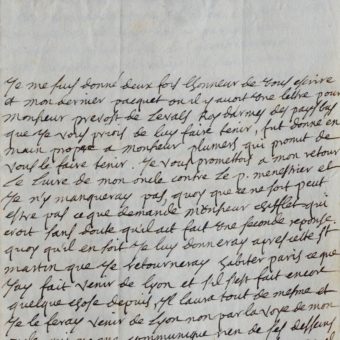 Je me suis donné deux fois l'honneur de vous escrire
et mon dernier pacquet ou il y avoit une lettre pour
Monsieur prevost de Levals, Roy d'armes des pays bas
que je vous priois de luy faire tenir, fut donné en
main propre a monsieur plumers qui promit de
vous le faire tenir. Je vous promettois a mon retour
Le Livre de mon oncle contre Le p. menestrier et
Je n'y manqueray pas, quoy que ce ne soit peut
estre pas ce que demande monsieur Chifflet qui
croit sans doute qu'il ait fait une seconde reponse
quoy qu'il en soit Je luy donneray apres cette St
martin que Je retourneray habiter paris ce que
Jay fait venir de Lyon et s'il s'est fait encor
quelque chose depuis, Il l'aura tout de mesme et
Je le feray venir de Lyon non par la voye de mon
communique rien de ses desseins